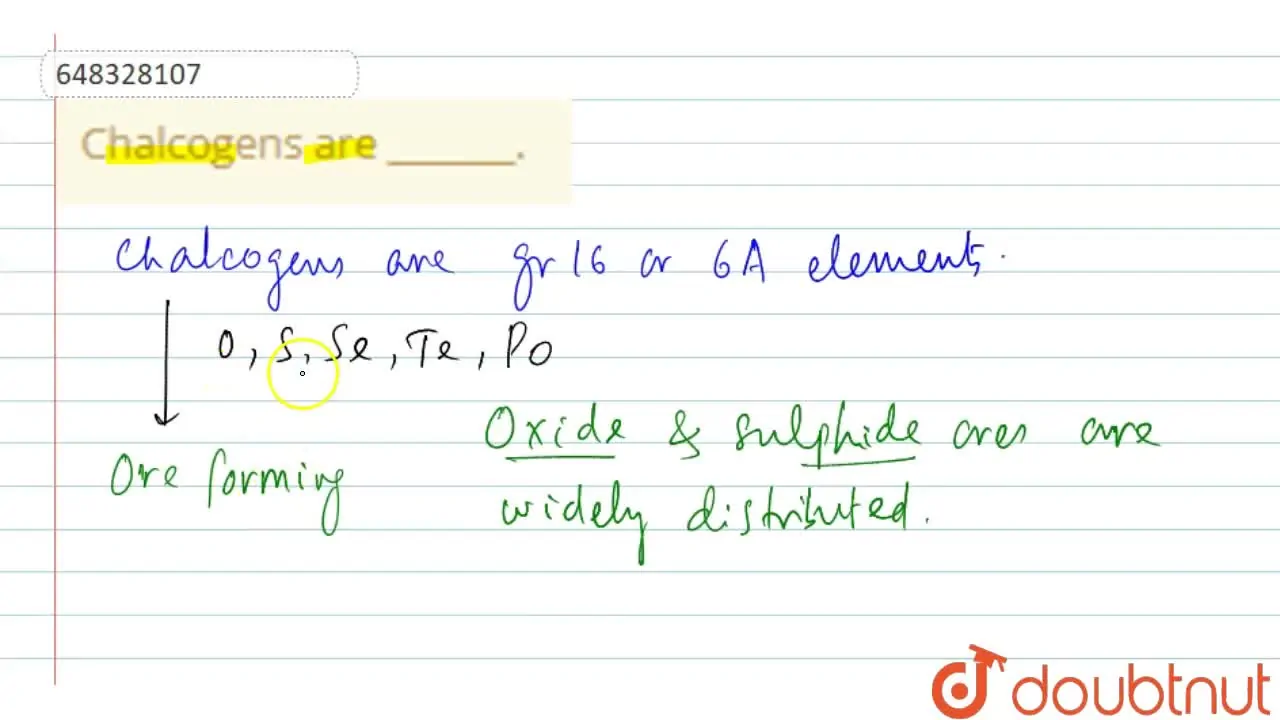 648328107
Chalcogens are ______.
Chalcogens are gr 16 or 6A elements.
O, S, Se, Te, Po
Oxide & sulphide ores are
Ore forming
widely distributed.
doubtnut